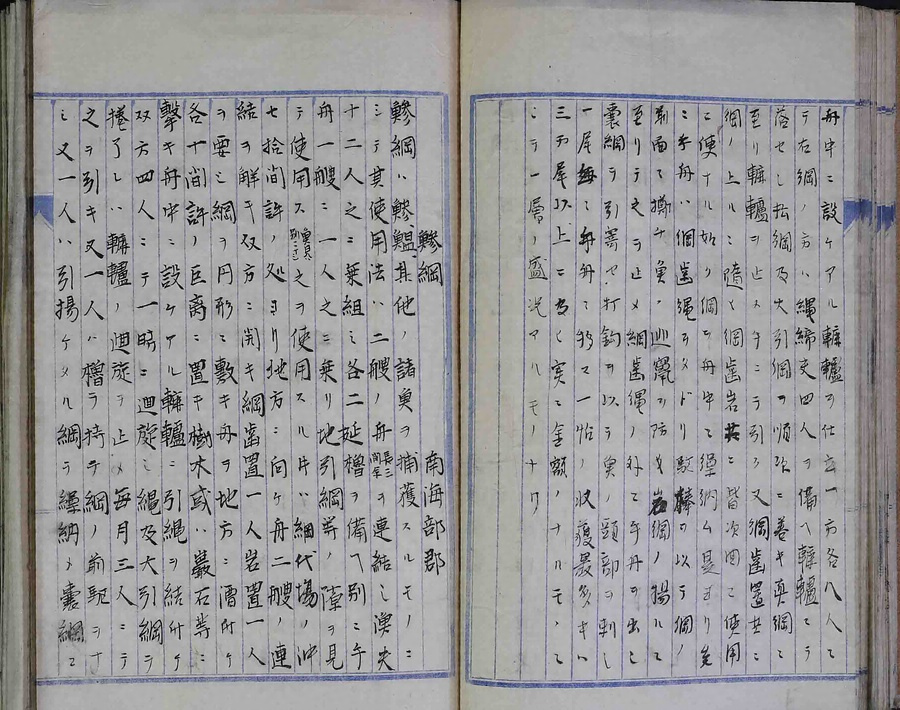 舟中ニ設ケアル轆轤ヲ仕立一方各八人ニ
テ右綱ノ方ニハ縄締夫四人ヲ備ヘ轆轤ニ
落セシ拈綱及大引綱ヲ順次ニ巻キ真綱ニ
至リ轆轤ヲ止メ手ニテ引ク又綱歯置共ニ
綱ノ上ルニ随ヒ綱歯岩共ニ皆次回ニ使用
ニ便ナル如ク綱ヲ舟中ニ繰納ム是ヨリ先
ニ手舟ハ個歯縄ヲタドリ駈棒ヲ以テ綱ノ
前面ニ搏チ魚ノ逃竄ヲ防キ岩綱ノ揚ルニ
至リテ之ヲ止メ綱歯縄ノ外ニ手舟ヲ出シ
嚢綱ヲ引寄セ打鈎ヲ以テ魚ノ頭部ヲ刺シ
一尾毎ニ舟舟ニ移ス一怡ノ収獲最多キハ
三百尾以上ニ当ル実ニ金額ノナルモノニ
シテ一層ノ盛況アルモノナリ
鰺綱 南海部郡
鰺綱ハ鰺、鰮、其他ノ諸魚ヲ捕獲スルモノニ
シテ其使用法ハ二艘ノ舟長三間余ヲ連結シ漁夫
十二人之ニ乗組ミ各二挺櫓ヲ備ヘ別ニ手
舟一艘ニ一人之ニ乗リ地引綱等ノ障ヲ見
テ使用ス漁具別ニ之ヲ使用スルハ綱代場ノ沖
七拾間許ノ処ヨリ地方ニ向ケ舟二艘ノ連
結ヲ解キ双方ニ開キ綱歯置一人岩置一人
ヲ要シ綱ヲ円形ニ敷キ舟ヲ地方ニ漕附ケ
各十間許ノ巨离ニ置キ樹木或ハ巌石等ニ
撃キ舟中ニ設ケケル轆轤ニ引縄ヲ結附ケ
双方四人ニテ一時ニ廻旋シ縄及大引綱ヲ
捲了レハ轆轤ノ廻旋ヲ止メ毎月三人ニテ
之ヲ引キ又一人ハ櫓ヲ持テ綱ノ前駈ヲナ
シ又一人ハ引揚ケタル綱ヲ繰納メ嚢綱ニ